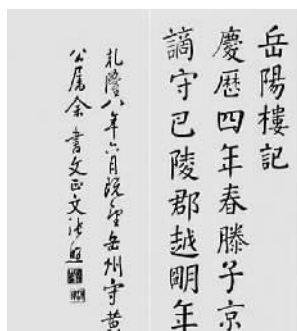 岳陽樓記
慶歷四年春滕子京
謫守巴陵郡越明年
乾隆八年六月既望岳州守黃
公屬余書文正文張照